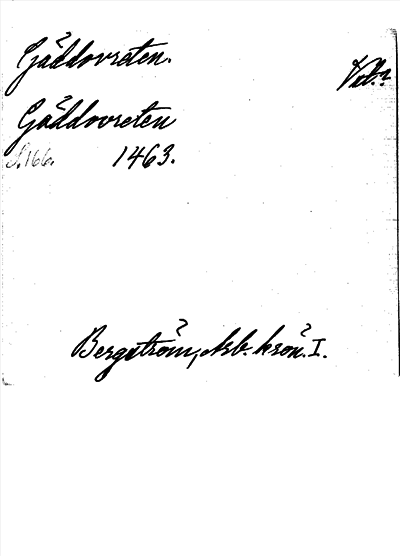 Gäddovreten.
Vib.?
Gäddovreten
S. 166. 1463.
Bergström, Arb. krön. I.